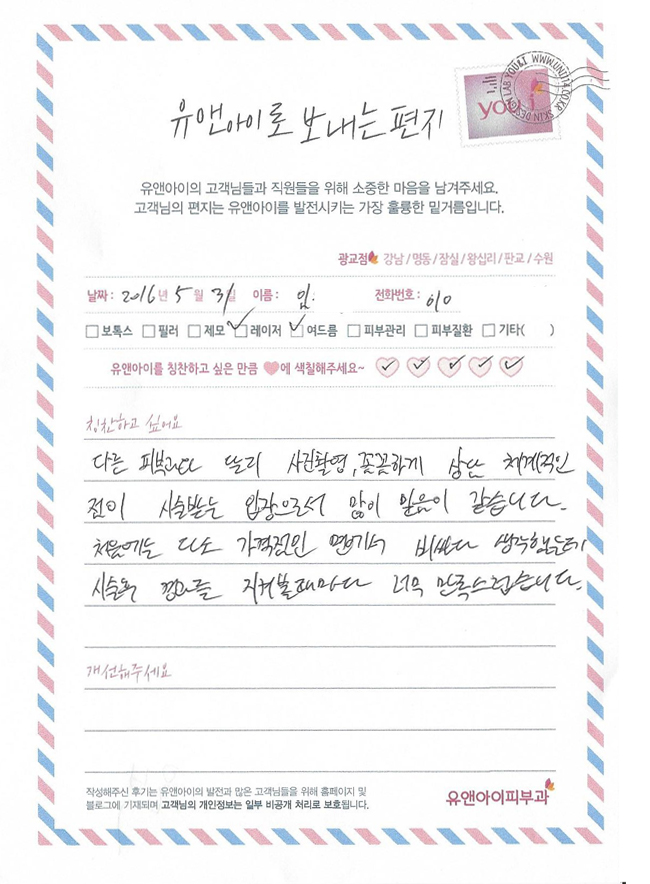 유앤아이로 보내는 편지
YOU&I WWW.UNI114.CO.KR SKIN DESIGN LAB
you i
유앤아이의 고객님들과 직원들을 위해 소중한 마음을 남겨주세요.
고객님의 편지는 유앤아이를 발전시키는 가장 훌륭한 밑거름입니다.
광교점 강남 / 명동 / 잠실 / 왕십리 / 판교 / 수원
날짜 : 2016년 5월 31일 이름 : 임. 전화번호 : 010
보톡스 필러 제모 레이저 여드름 피부관리 피부질환 기타( )
유앤아이를 칭찬하고 싶은 만큼 에 색칠해주세요~
칭찬하고 싶어요
다른 피부과와 달리 사진촬영, 꼼꼼하게 상담 체계적인
점이 시술받는 입장으로서 많이 믿음이 갔습니다.
처음에는 다소 가격적인 면에서 비싸다 생각했는데
시술후 경과를 지켜볼때마다 너무 만족스럽습니다.
개선해주세요
작성해주신 후기는 유앤아이의 발전과 많은 고객님들을 위해 홈페이지 및
블로그에 기재되며 고객님의 개인정보는 일부 비공개 처리로 보호됩니다.
유앤아이피부과